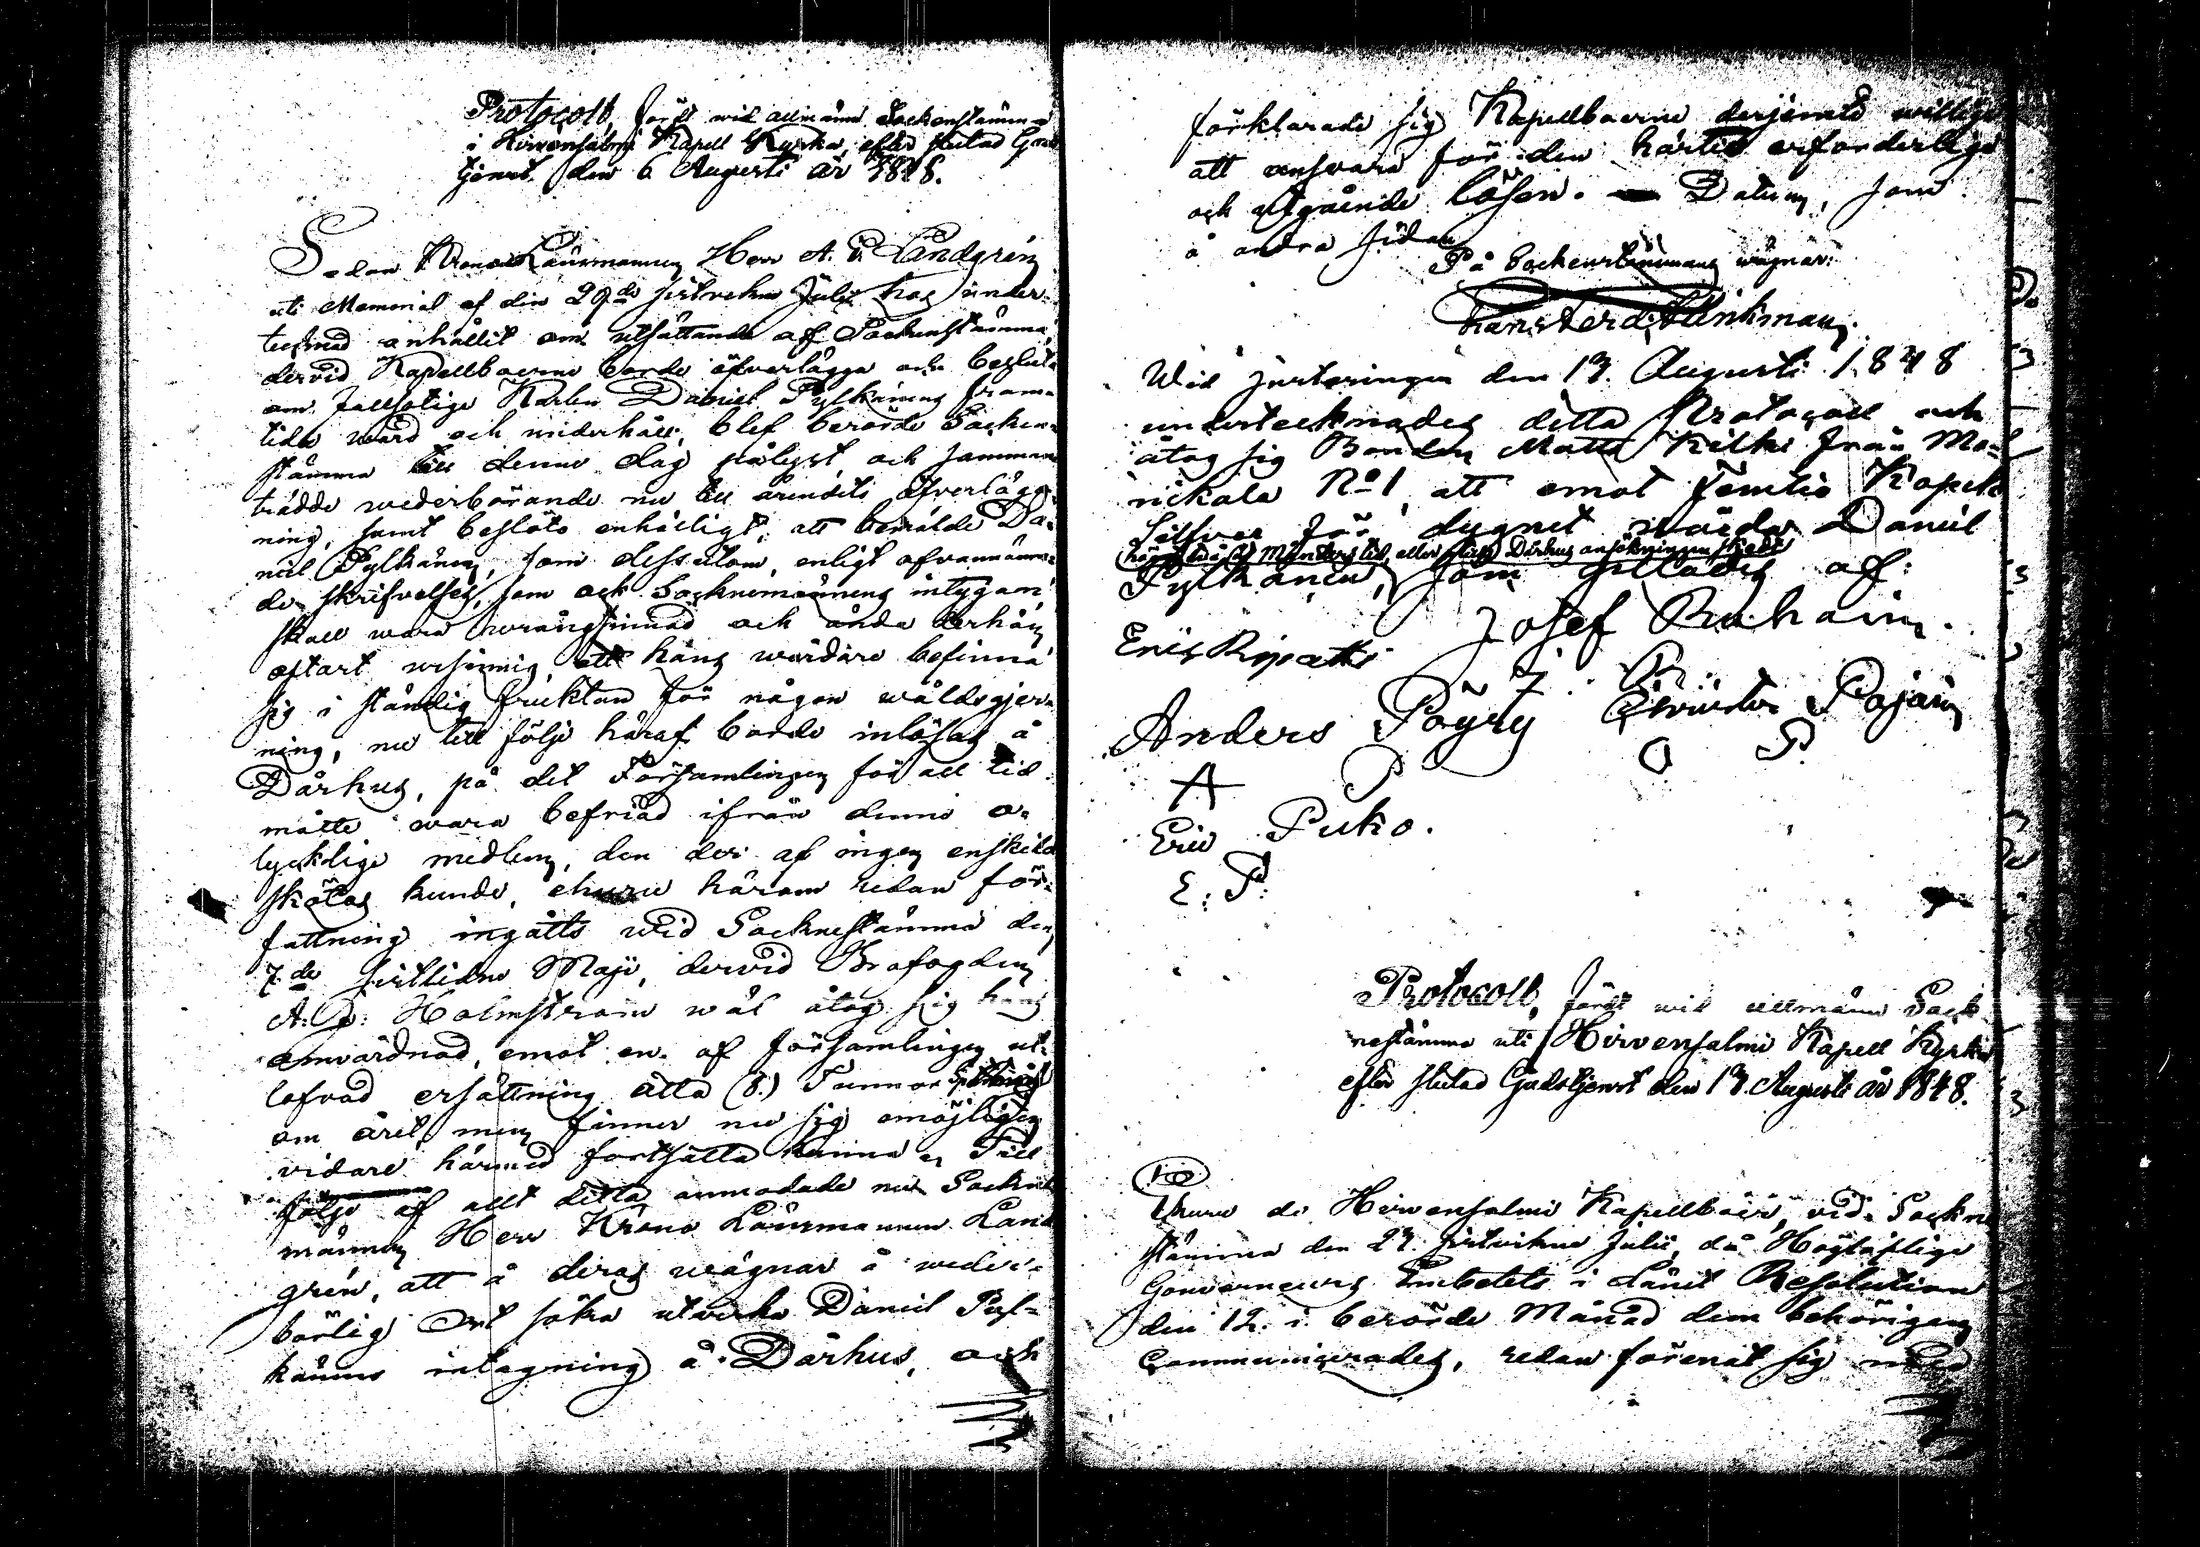 Protocoll, fördt wid allmänn Sockenstämma
i Hirvensalmi Kapell Kyrka, efter slutad Guds
tjenst den 6 Augusti år 1848.
Sedan Krono Länsmannen Herr A. G. Landgrén
uti Memorial af den 29de sistvekne Julii hos under-
tecknad anhållit om utsättande af Sockenstämma,
dervid Kapellboerne borde öfverlägga och besluta
om fallsotige Karlen Daniel Pylkäinens fram-
tida wård och underhåll, blef berörde Socken-
stämma till denne dag pålyst, och samman-
trädde wederbörande nu till ärendets öfverlägg-
ning, samt beslöto enhälligt, att bemälde Da-
niel Pylkäinen, som dessutom, enligt ofvannämn-
de skrifvelse, som ock Socknemännens intygan
skall wara wrångsinnad och ända derhän
oftast ursinnig, att hans wårdare befinna
sig i ständig fruktan för någon wåldsgjer-
ning, nu till följe häraf borde inlösas å
Dårhus, på det Församlingen för all tid
måtte wara befriad ifrån denne o-
lycklige medlem, den der af ingen enskild
skötas kunde, ehuru härom redan för-
fattning ingåtts wid Socknestämma den
7de sistlidne Maji, dervid Brofogden
A: J: Holmström wäl åtog sig hans
omvårdnad, emot en af församlingen ut-
lofvad ersättning åtta (8.) Tunnor Spanmål
om året, men finner nu sig omöjligen
vidare härmed fortsätta kunna. Till
följe af allt detta anmodade nu Sockne
männen Herr Krono Länsmannen Land
grén, att å deras wägnar å weder-
börlig Ort söka utverka Daniel Pyl-
käinens intagning å Dårhus, och
förklarade sig Kapellboerne derjemte willige
att ansvara för den härtill erforderlige
och utgående lösen. Datum, som
å andra sidan.
På Sockenstämmans wägnar:
Blinkman.
Wid justeringen den 13. Augusti 1848
undertecknades detta Protocoll och
åtog sig Bonden Matts Kilki från Mo-
nikala No 1, att emot Femtio Kopek
Silfver för dygnet wårda Daniel
högst två (2) Månders tid, eller tills Dårhus ansökningen skedt
Pylkänen, som gillades af:
Josef Ruhainen.
J. R.
Eric Ripatti
Anders Pöyry
A P
Pajain
P.
Eric Puko.
E. P.
Protocoll, fördt wid allmänn Sock
nestämma uti Hirvensalmi Kapell Kyrka
efter slutad Gudstjenst den 13. Augusti år 1848.
1o
Ehuru de Hirvensalmi Kapellboer, vid Sockne
stämma den 23. sistvikne Julii, då Höglofliga
Gouverneurs Embetets i Länet Resolution
den 12. i berörde Månad dem behörigen
Communicerades, redan förenat sig med